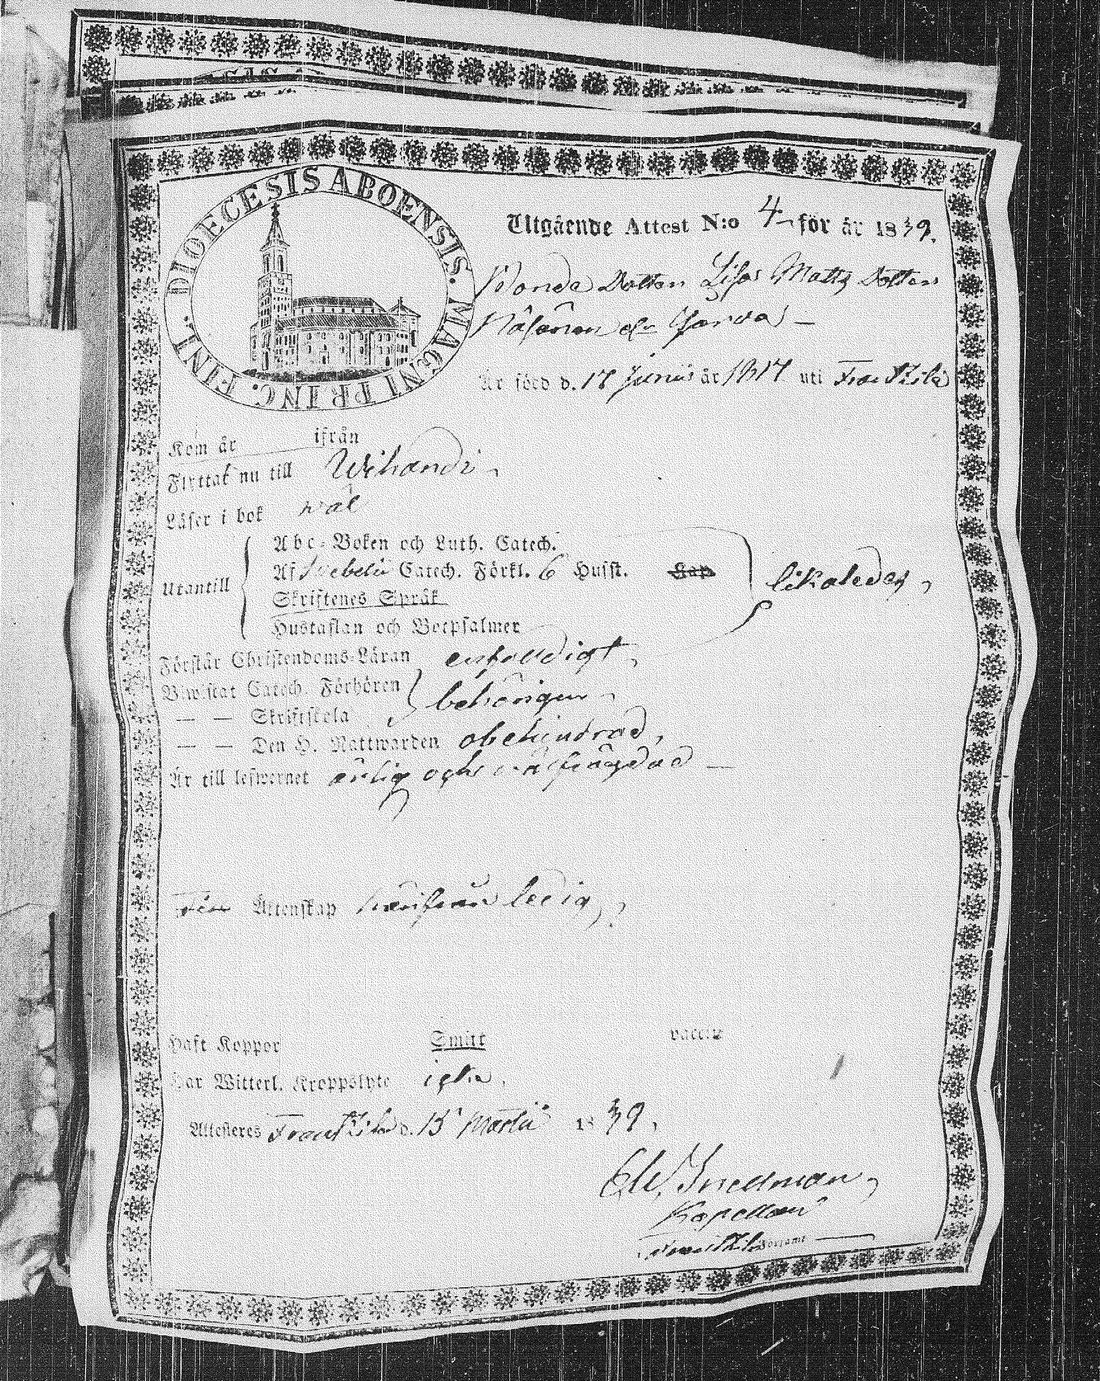 DIOECESIS ABOENSIS. MAGNI PRINC. FINL.
Utgående Attest N:o 4 för år 1839.
Bonde Dottern Lisa Matts Dotter
från Jarva –
Är född d. 17 Junii år 1817 uti Frantzila
Kom år ifrån
Flyttat nu till Wihandi
Läser i bok wäl
Utantill
Abc-Boken och Luth. Catech.
Af Swebelii Catech. Förkl. 6 Husst. Kap
Skriftenes Språk
Hustaflan och Botpsalmer
likaledes,
Förstår Christendoms-Läran enfaldigt,
Biwistat Catech. Förhören
— — Skriftskola
behörigen
— — Den H. Nattwarden obehindrad,
Är till lefwernet ärlig och wälfrägdad —
Till Äktenskap härifrån ledig,
Haft Koppor Smitt vaccin
Har Witterl. Kroppslyte icke,
Attesteras Frantzila d. 15 Martii 1839,
Kapellan
Frantzila Församl